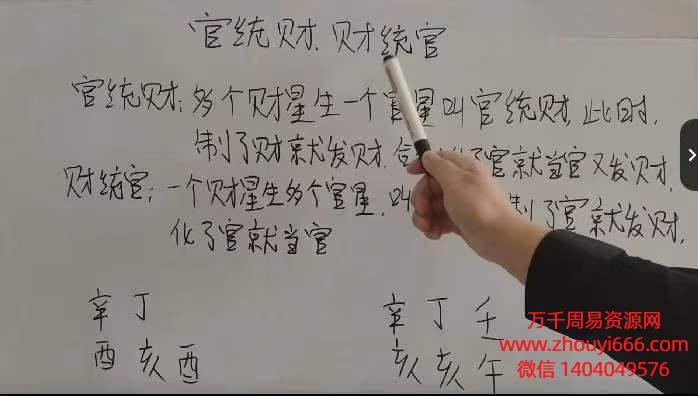 官统财、财统官
官统财：多个财星生一个官星叫官统财，此时，
制了财就发财，合 了官就当官又发财，
财统官：一个财星生多个官星，叫 制了官就发财，
化了官就当官
辛丁 辛丁壬
酉亥酉 亥亥午
万千周易资源网
www.zhouyi666.com
微信 1404049576